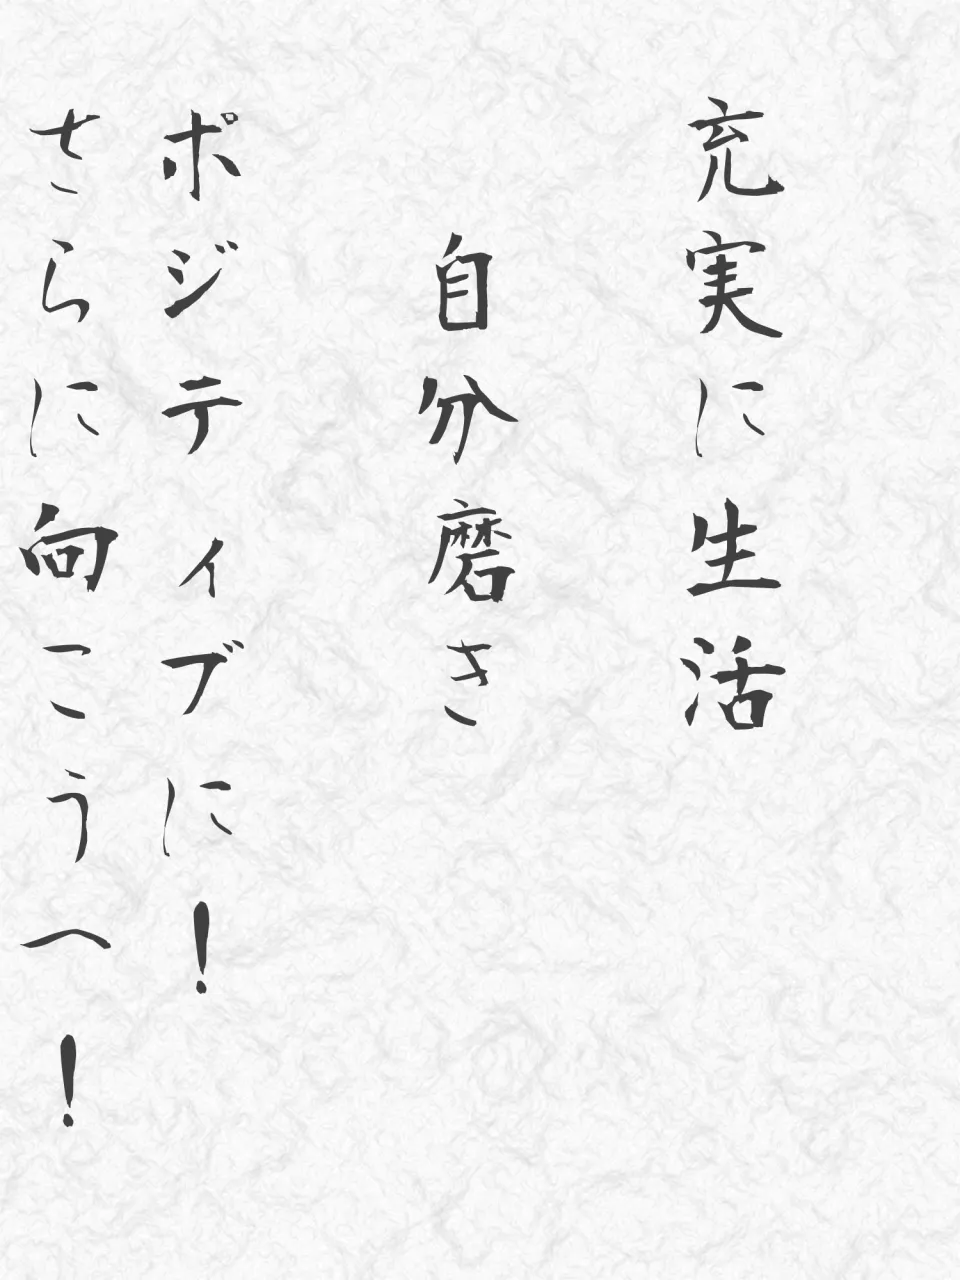 充実に生活
自分磨き
ポジティブに！
さらに向こうへ！